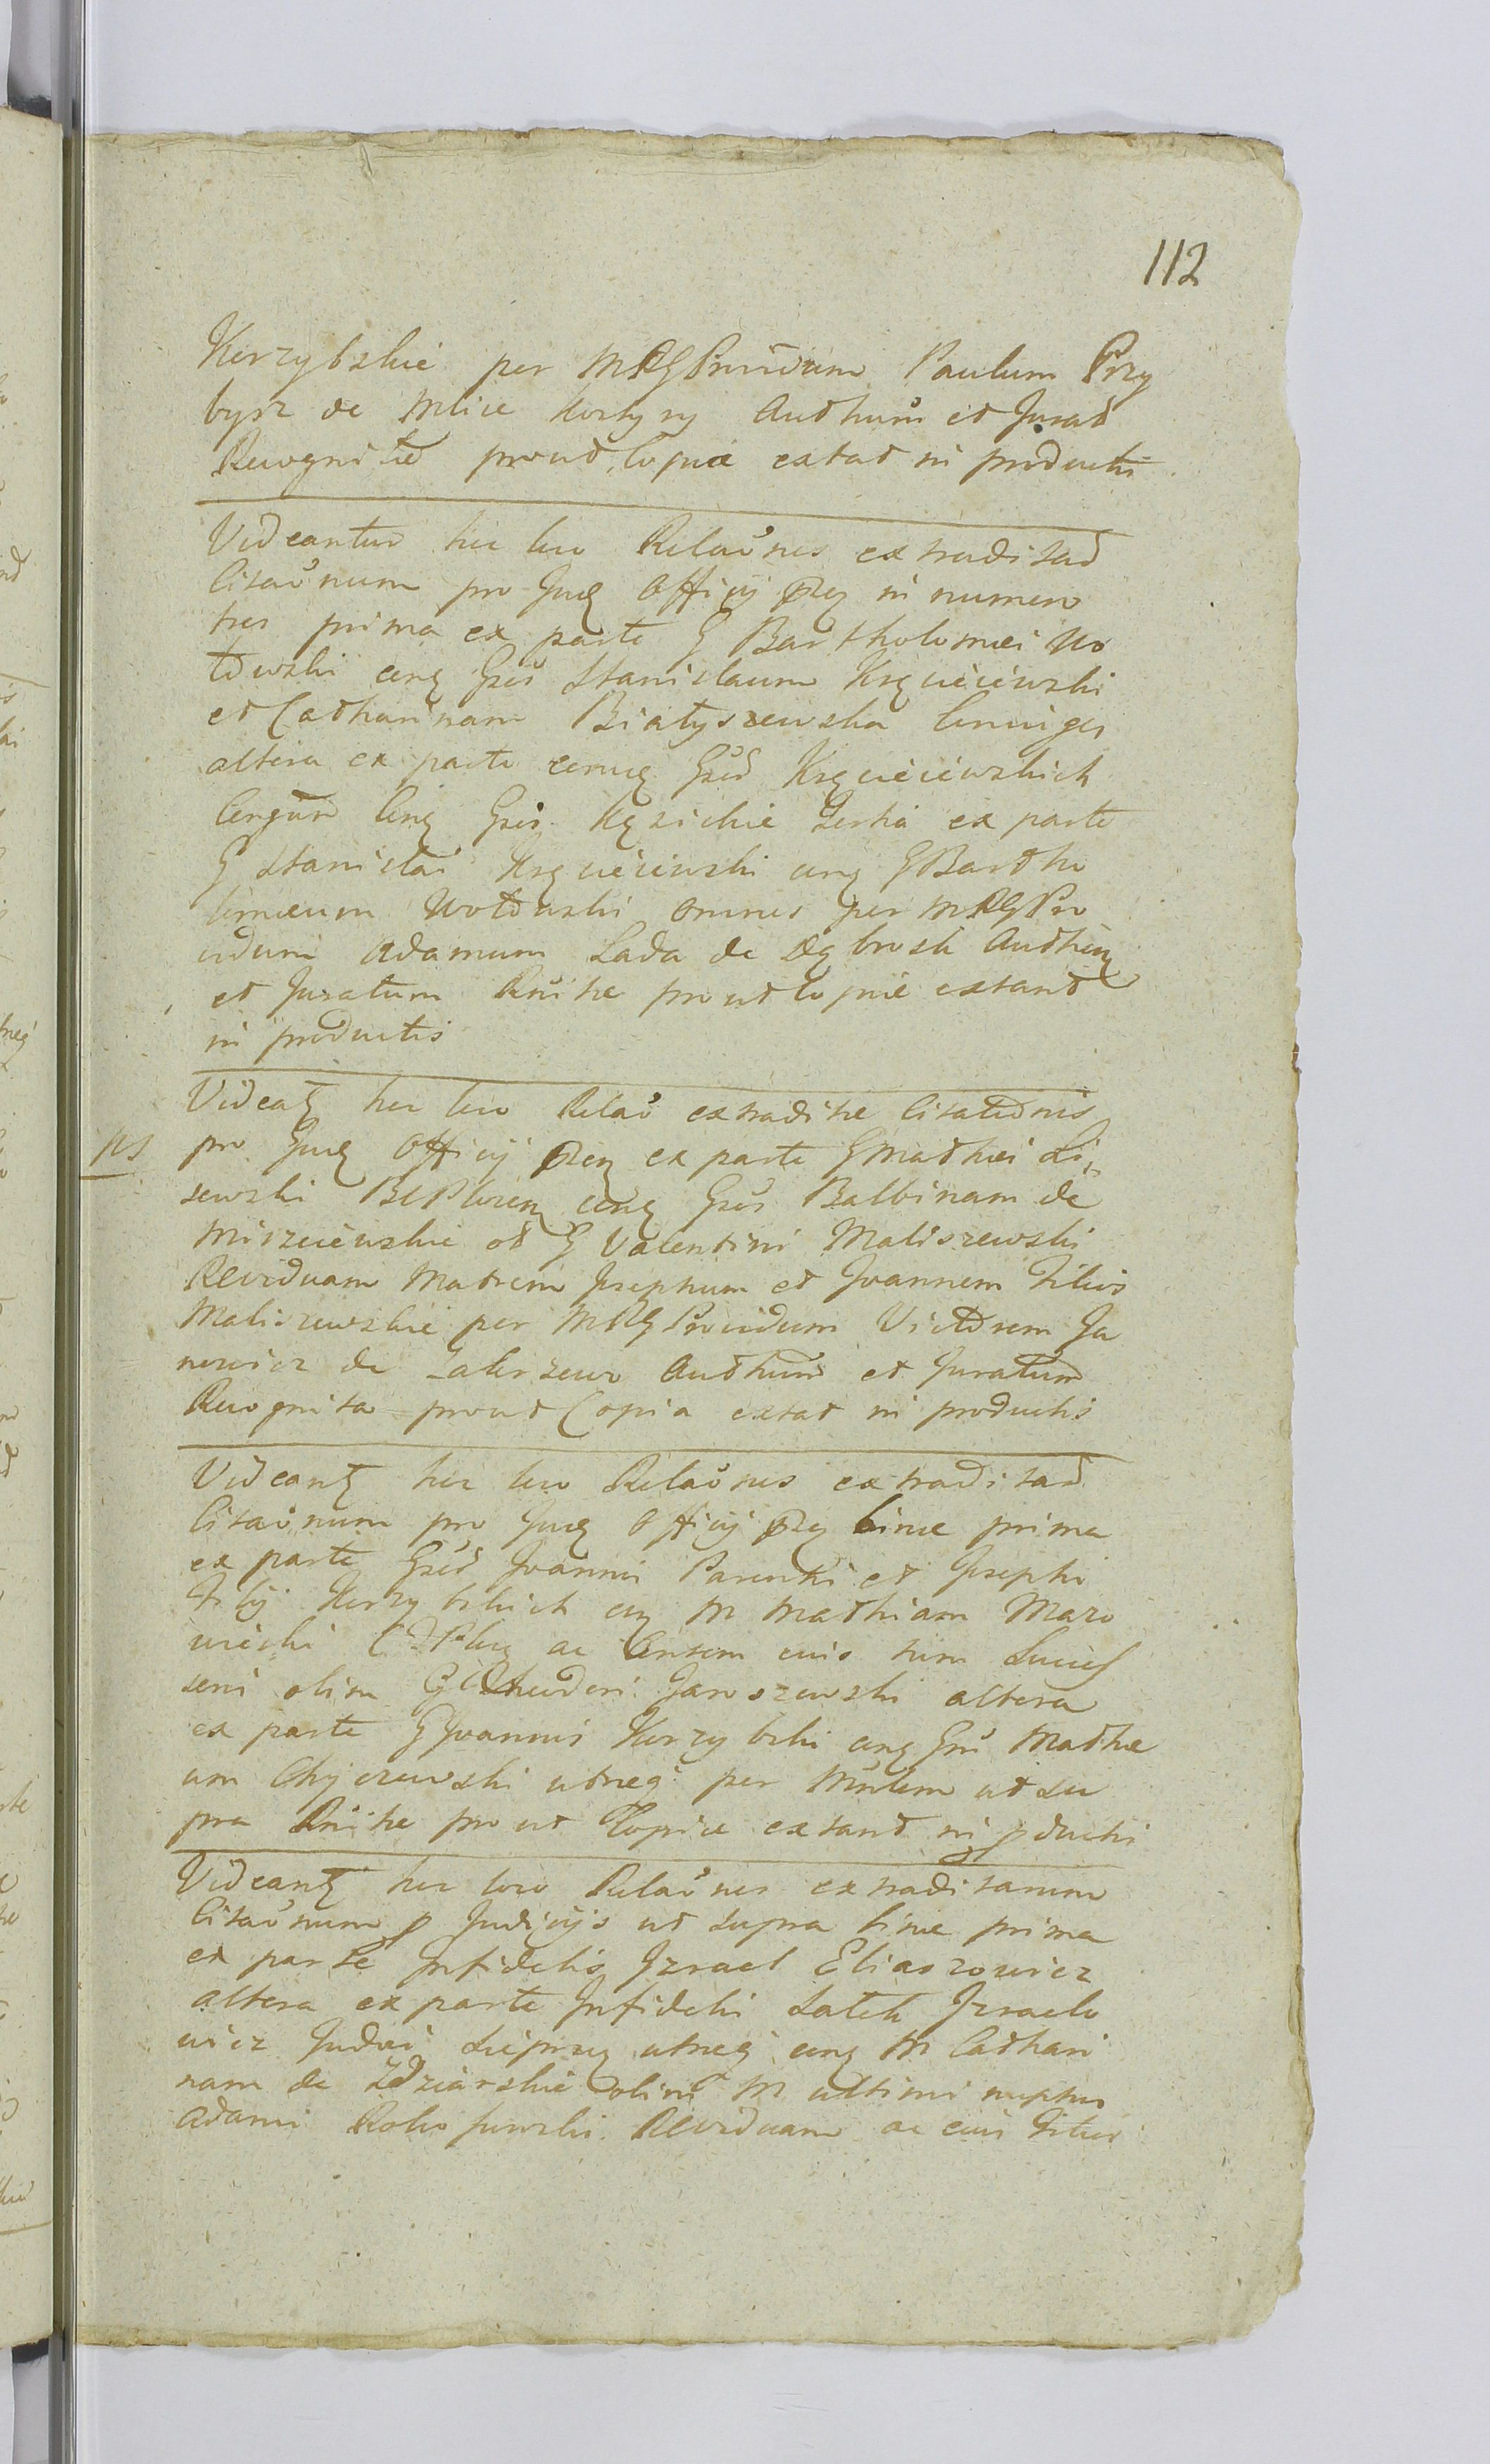 112
Kurzybskie per MRGProvidum Paulum Przy
bysz de Mlice Kostyry Authum et Jurat
Recognitæ prout Copiæ extat in productis
Videantur hic loco Relaōnes extraditar
Citaōnum pro Jud Officij Reg in numero
tres prima ex parte G Bartholomei Wo
towski cong Gsos Stanislaum Ksęcieiewski
et Catharinam Białyszewska Coniuges
altera ex parte eorung Gsor Ksęcieiewskich
Congum Cong Gsos Kęsickie tertia ex parte
G Stanislai Ksęcieiewski cong G Bartho
lomeum Wotowski omnes per MRGPro
vidum Adamum Lada de Dębrosk Authen
et Juratum Rnitæ prout Copiæ extant
in productis
Videat hic loco Relaō extraditæ Citationis
ps pro Jud Officij Reg ex parte G Mathei Li„
sewski BCPlocen cong Gsos Balbinam de
Miszewskie ol G Valentini Maliszewski
Relviduam Matrem Josephum et Joannem Filios
Maliszewskie per MRG Providum Victorem Ja
nowicz de Zakrzewo Authum et Juratum
Recognita prout Copia extat in productis
Videant hic loco Relaōnes extraditar
Citaōnum pro Jud Officij Reg binæ prima
ex parte Gsor Joannis Parentis et Josephi
Filij Kurzybskich cong M Mathiam Mazo
wiecki ac Consem eius tum Succes
sem olim G Theodori Jaroszewski altera
ex parte G Joannis Kurzybski cong Gm Mathe
um Chyczewski utraq per Mnlem ut su
pra Rnitæ prout Copiæ extant in pductis
Videant hic loco Relaōnes extraditarum
Citaōnum p Judicijs ut supra binæ prima
ex parte Infidelis Izrael Eliaszowicz
altera ex parte Infidelis Latek Izraelo
wicz Judæi Sieprcz utraq cong M Cathari
nam de Zdziarskie olim M ultimi nuptus
Adami Rokosowski Relviduam ac eius Filios